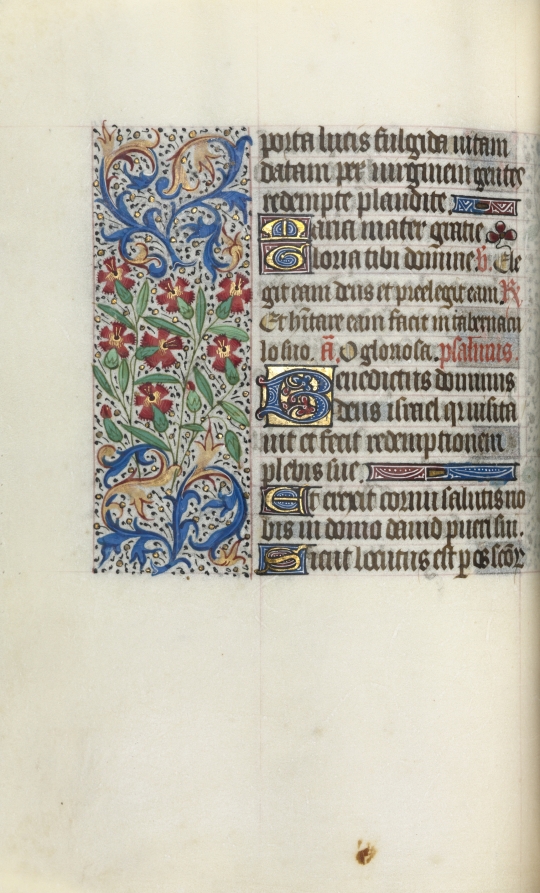 porta lucis fulgida uitam
datam per uirginem gentes
redempte plaudite.
Maria mater gratie
Gloria tibi domine. V. Ele
git eam deus et preelegit eam. R
Et hītare eam facit in tabernacu
lo suo. ā. O gloriosa. psalmus.
Benedictus dominus
deus israel q uisita
uit et fecit redemptionem
plebis sue
Et erexit cornu salutis no
bis in domo dauid pueri sui.
Sicut locutus est p os scōr